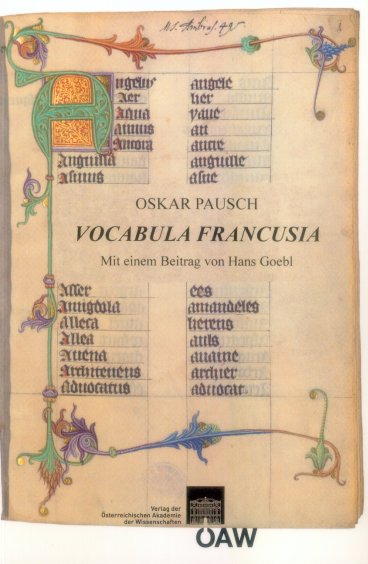 M.S. Ambras. 42
Angelus angele
Aer lier
Aqua yaue
Annus an
Ancora ancre
Anguilla anguille
Asinus asne
OSKAR PAUSCH
VOCABULA FRANCUSIA
Mit einem Beitrag von Hans Goebl
Asser ees
Amigdola amandeles
Alleca herens
Allea auls
Auena auaine
Architenens archier
Aduocatus aduocat
Verlag der
Österreichischen Akademie
der Wissenschaften
ÖAW